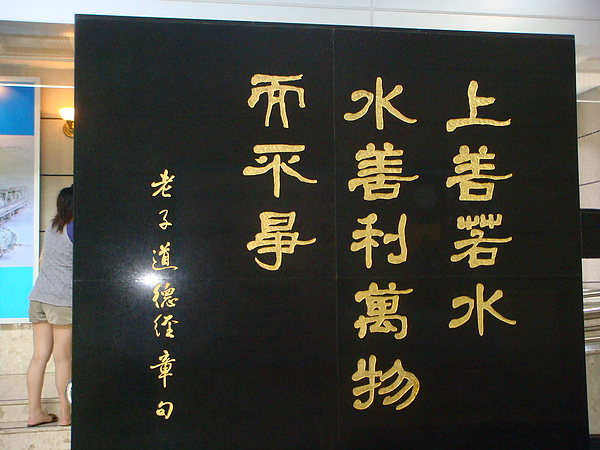 上善若水
水善利萬物
而不爭
老子道德經章句